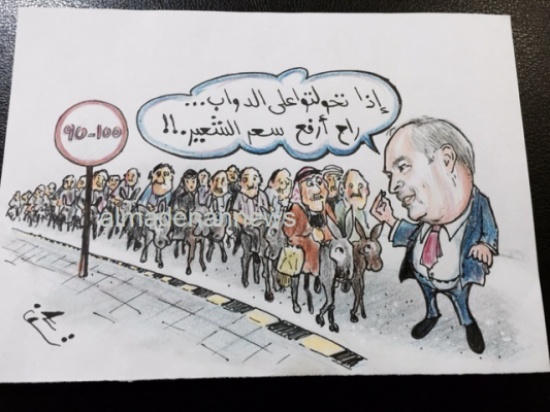 إذا تحولتوا على الدواب...
راح أرفع سعر الشعير..!!
90-100
almadenahnews